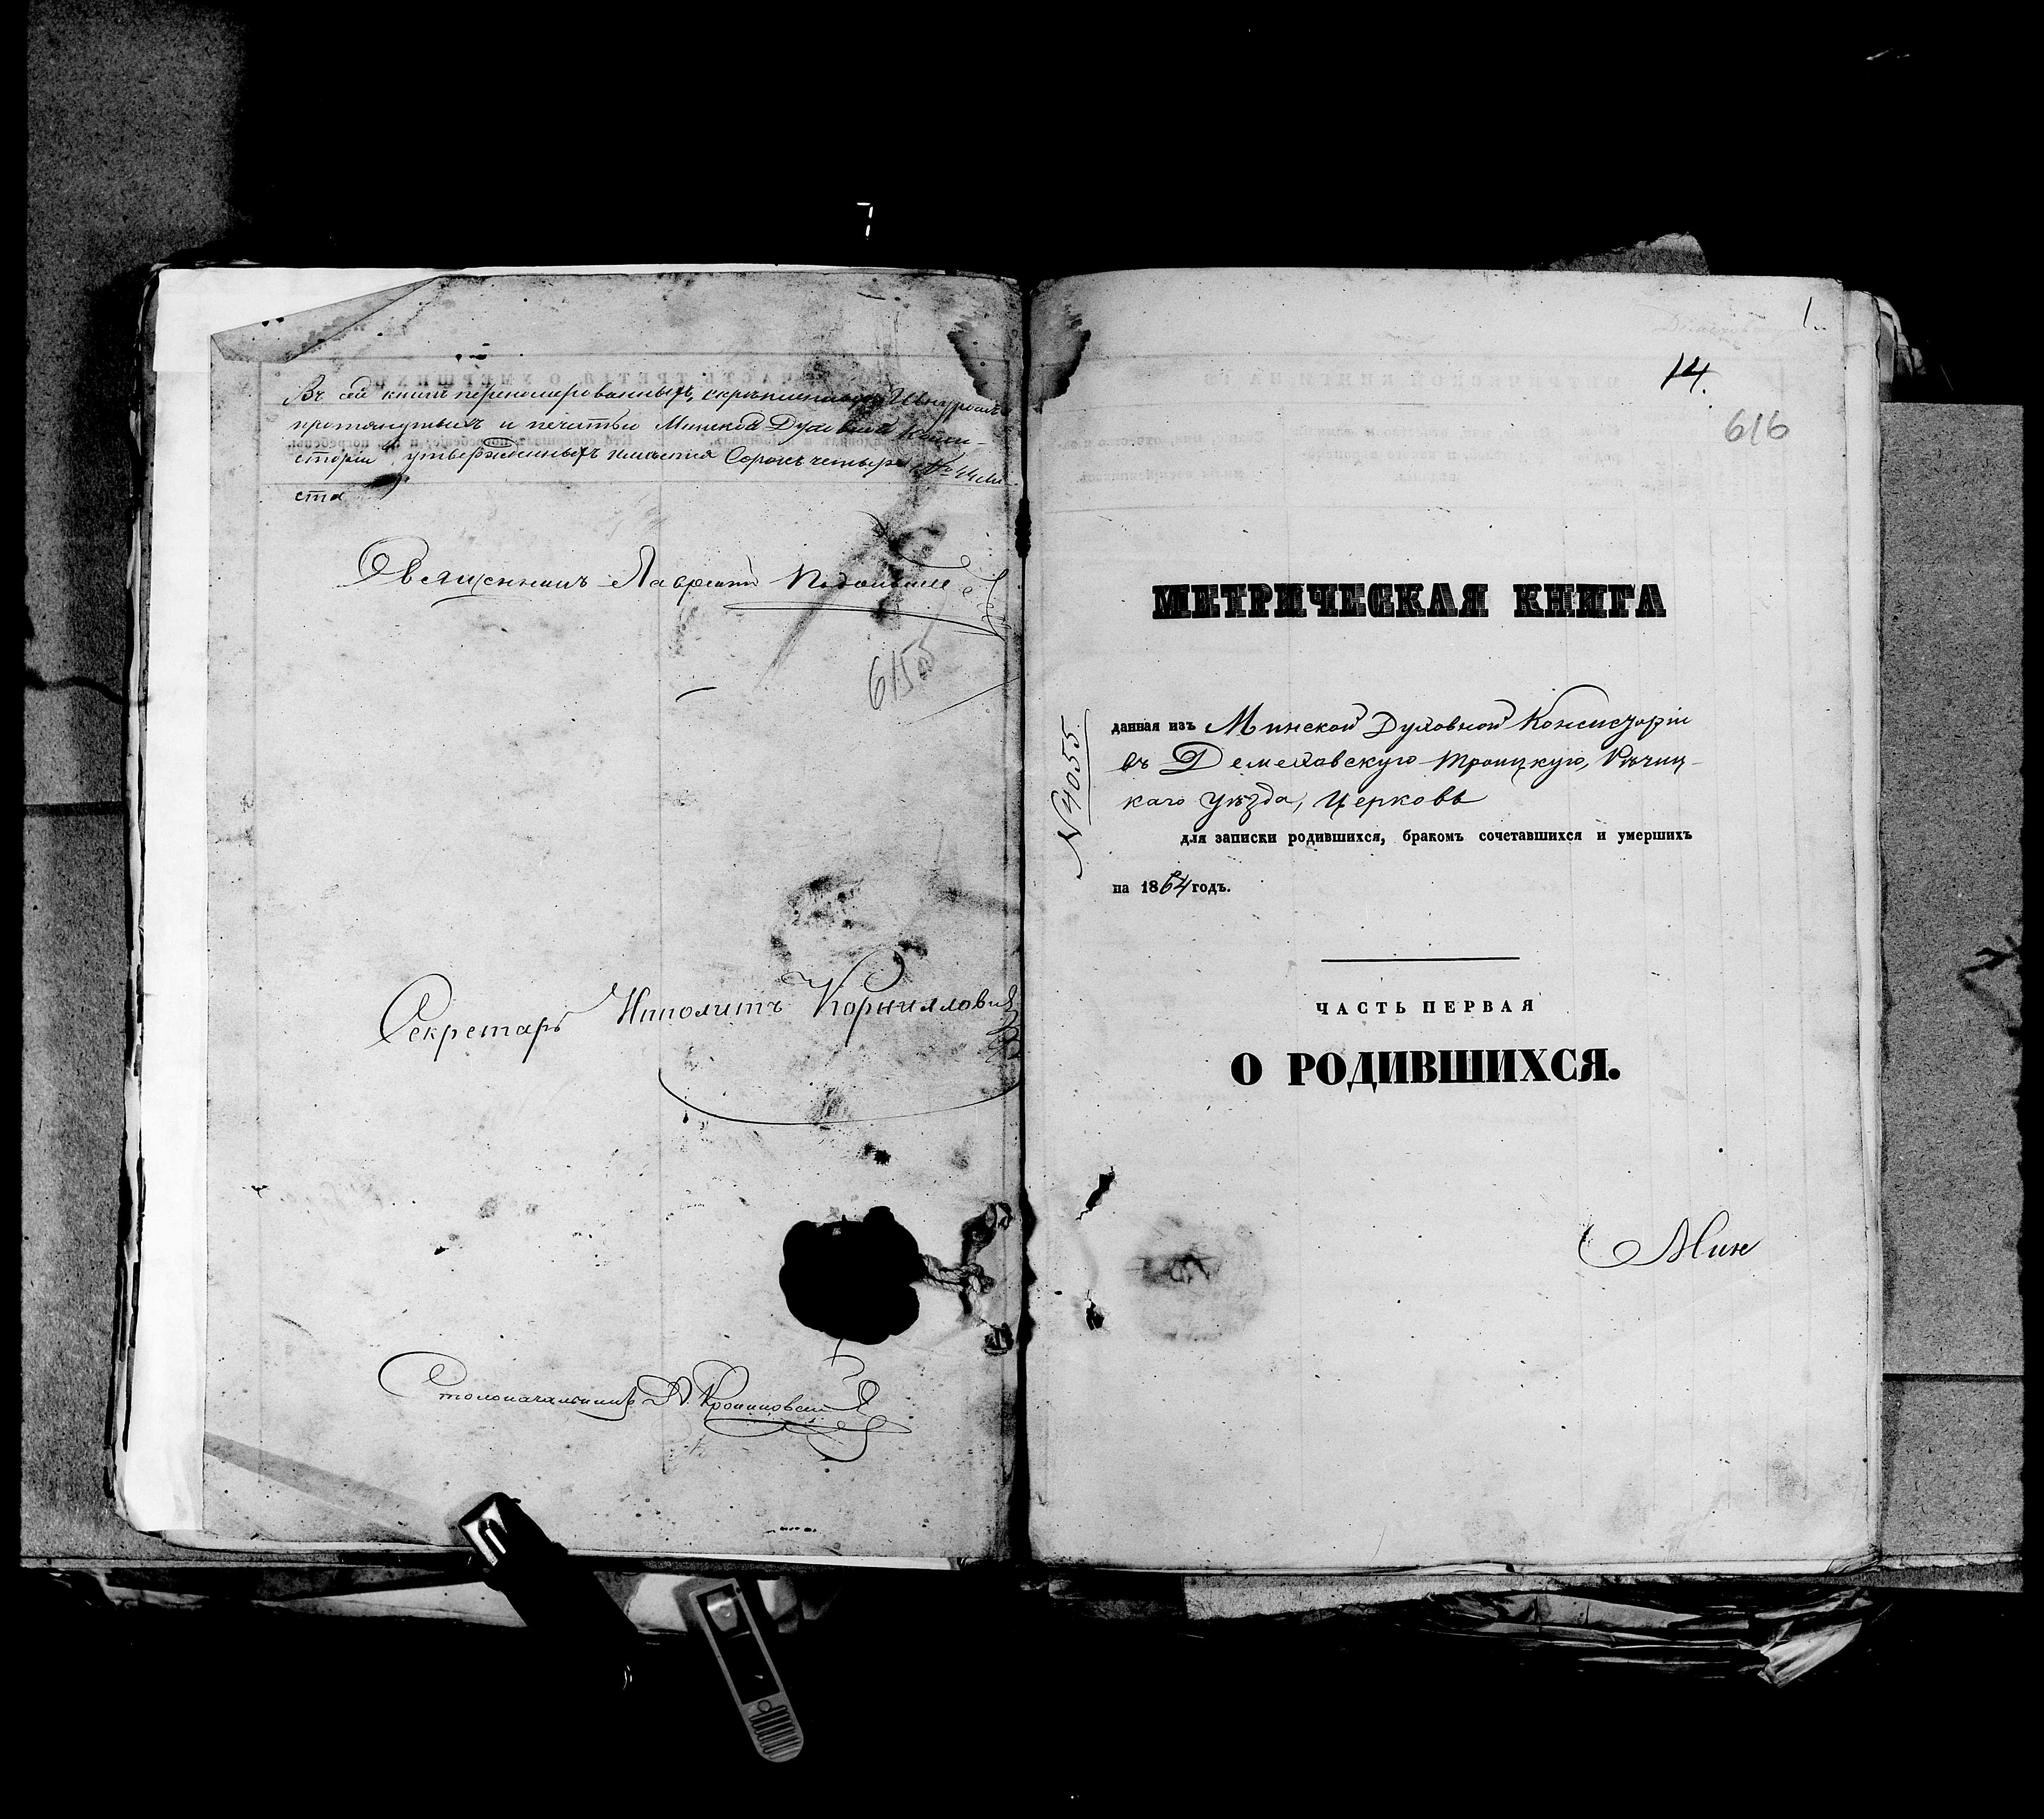 Въ сей книгѣ перенумерованныхъ, скрѣпленныхъ Шнуромъ
протянутыхъ и печатью Минской Духовной Конси-
сторіи утвержденныхъ имѣется Сорокъ четыре № 44 ли-
ста
Священникъ Лаврентій
615 об
Секретарь Ипполитъ Корниловичъ
Столоначальникъ
1.
14.
616
МЕТРИЧЕСКАЯ КНИГА
№ 4055
данная изъ Минской Духовной Консисторіи
въ Демеховскую Троицкую, Рѣчиц-
каго уѣзда, Церковь
для записки родившихся, бракомъ сочетавшихся и умершихъ
на 1864 годъ.
ЧАСТЬ ПЕРВАЯ
О РОДИВШИХСЯ.
Мин